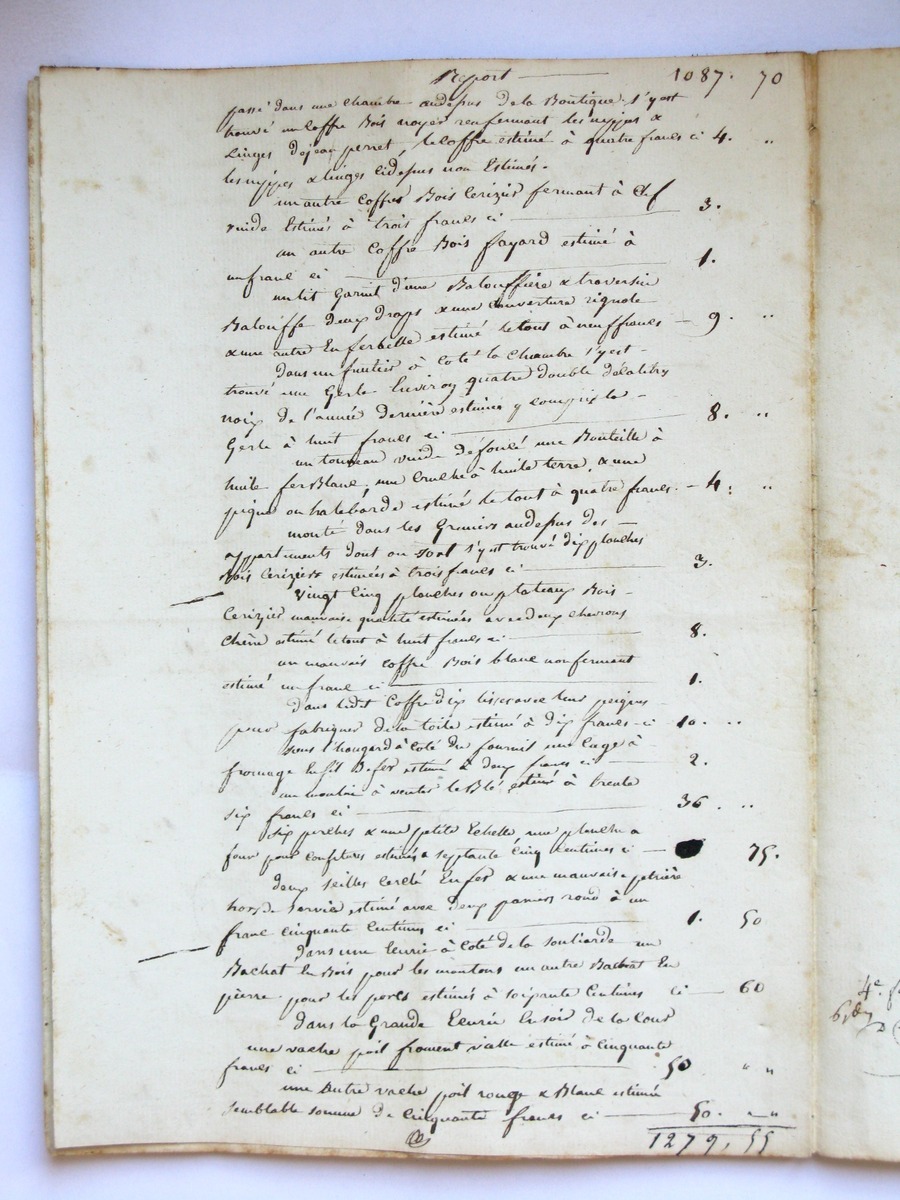 Report 1087. 70
passé dans une chambre audepus de la Boutique s'y est
trouvé un Coffre Bois noyer renfermant les nippes &
Linges dejean perret, le Coffre estimé à quatre francs ci 4. "
les nippes & linges cidepus non Estimés.
un autre Coffre Bois Cerizier fermant à Clef
vuide Estimé à trois francs ci 3.
un autre Coffre Bois fayard estimé à
un franc ci 1.
un lit Garnit d'une Balouffière & traversin
Balouffe deux draps & une Couverture
& une autre En ferbelle estimé letout à neuf francs 9. "
dans un à Coté la Chambre s'y est
trouvé une Gerle Environ quatre double
noix de l'année dernière estimée y compris la
Gerle à huit francs ci 8. "
un tonneau vuide défoncé une Bouteille à
huile fer Blanc, une Cruche à huile terre, & une
pique ou halebarde estimé letout à quatre francs. 4. "
monté dans les Greniers audepus des
appartements dont on sort s'y est trouvé dix planches
Bois Ceriziers estimées à trois francs ci 3.
vingt Cinq planches ou plateaux Bois
Cerizier mauvaise qualité estimées avec deux chevrons
Chêne estimé letout à huit francs ci 8.
un mauvais Coffre Bois blanc non fermant
estimé un franc ci 1.
dans ledit Coffre dix avec leur peignes
pour fabriquer dela toile estimé à dix francs ci 10. "
sous l'hangard à Coté du fournil une Cage à
fromage En fil de fer estimé à deux francs ci 2.
un moulin à venter le Blé estimé à trente
six francs ci 36. "
six perches & une petite Echelle, une planche a
four pour confitures estimés a septante Cinq Centimes ci 75.
deux seilles Cerclé En fer & une mauvaise petrière
hors de service estimé avec deux paniers rond à un
franc Cinquante Centimes ci 1. 50
dans une Ecurie à Coté de la souliarde un
Bachat En Bois pour les moutons un autre Bachat En
pierre pour les porcs estimés à soixante Centimes ci 60
Dans la Grande Ecurie En soir de la Cour
une vache poil froment vieille estimé à Cinquante
francs ci 50 " "
une Autre vache poil rouge & Blanc estimé
semblable somme de Cinquante francs ci 50. " "
1279, 55
4e